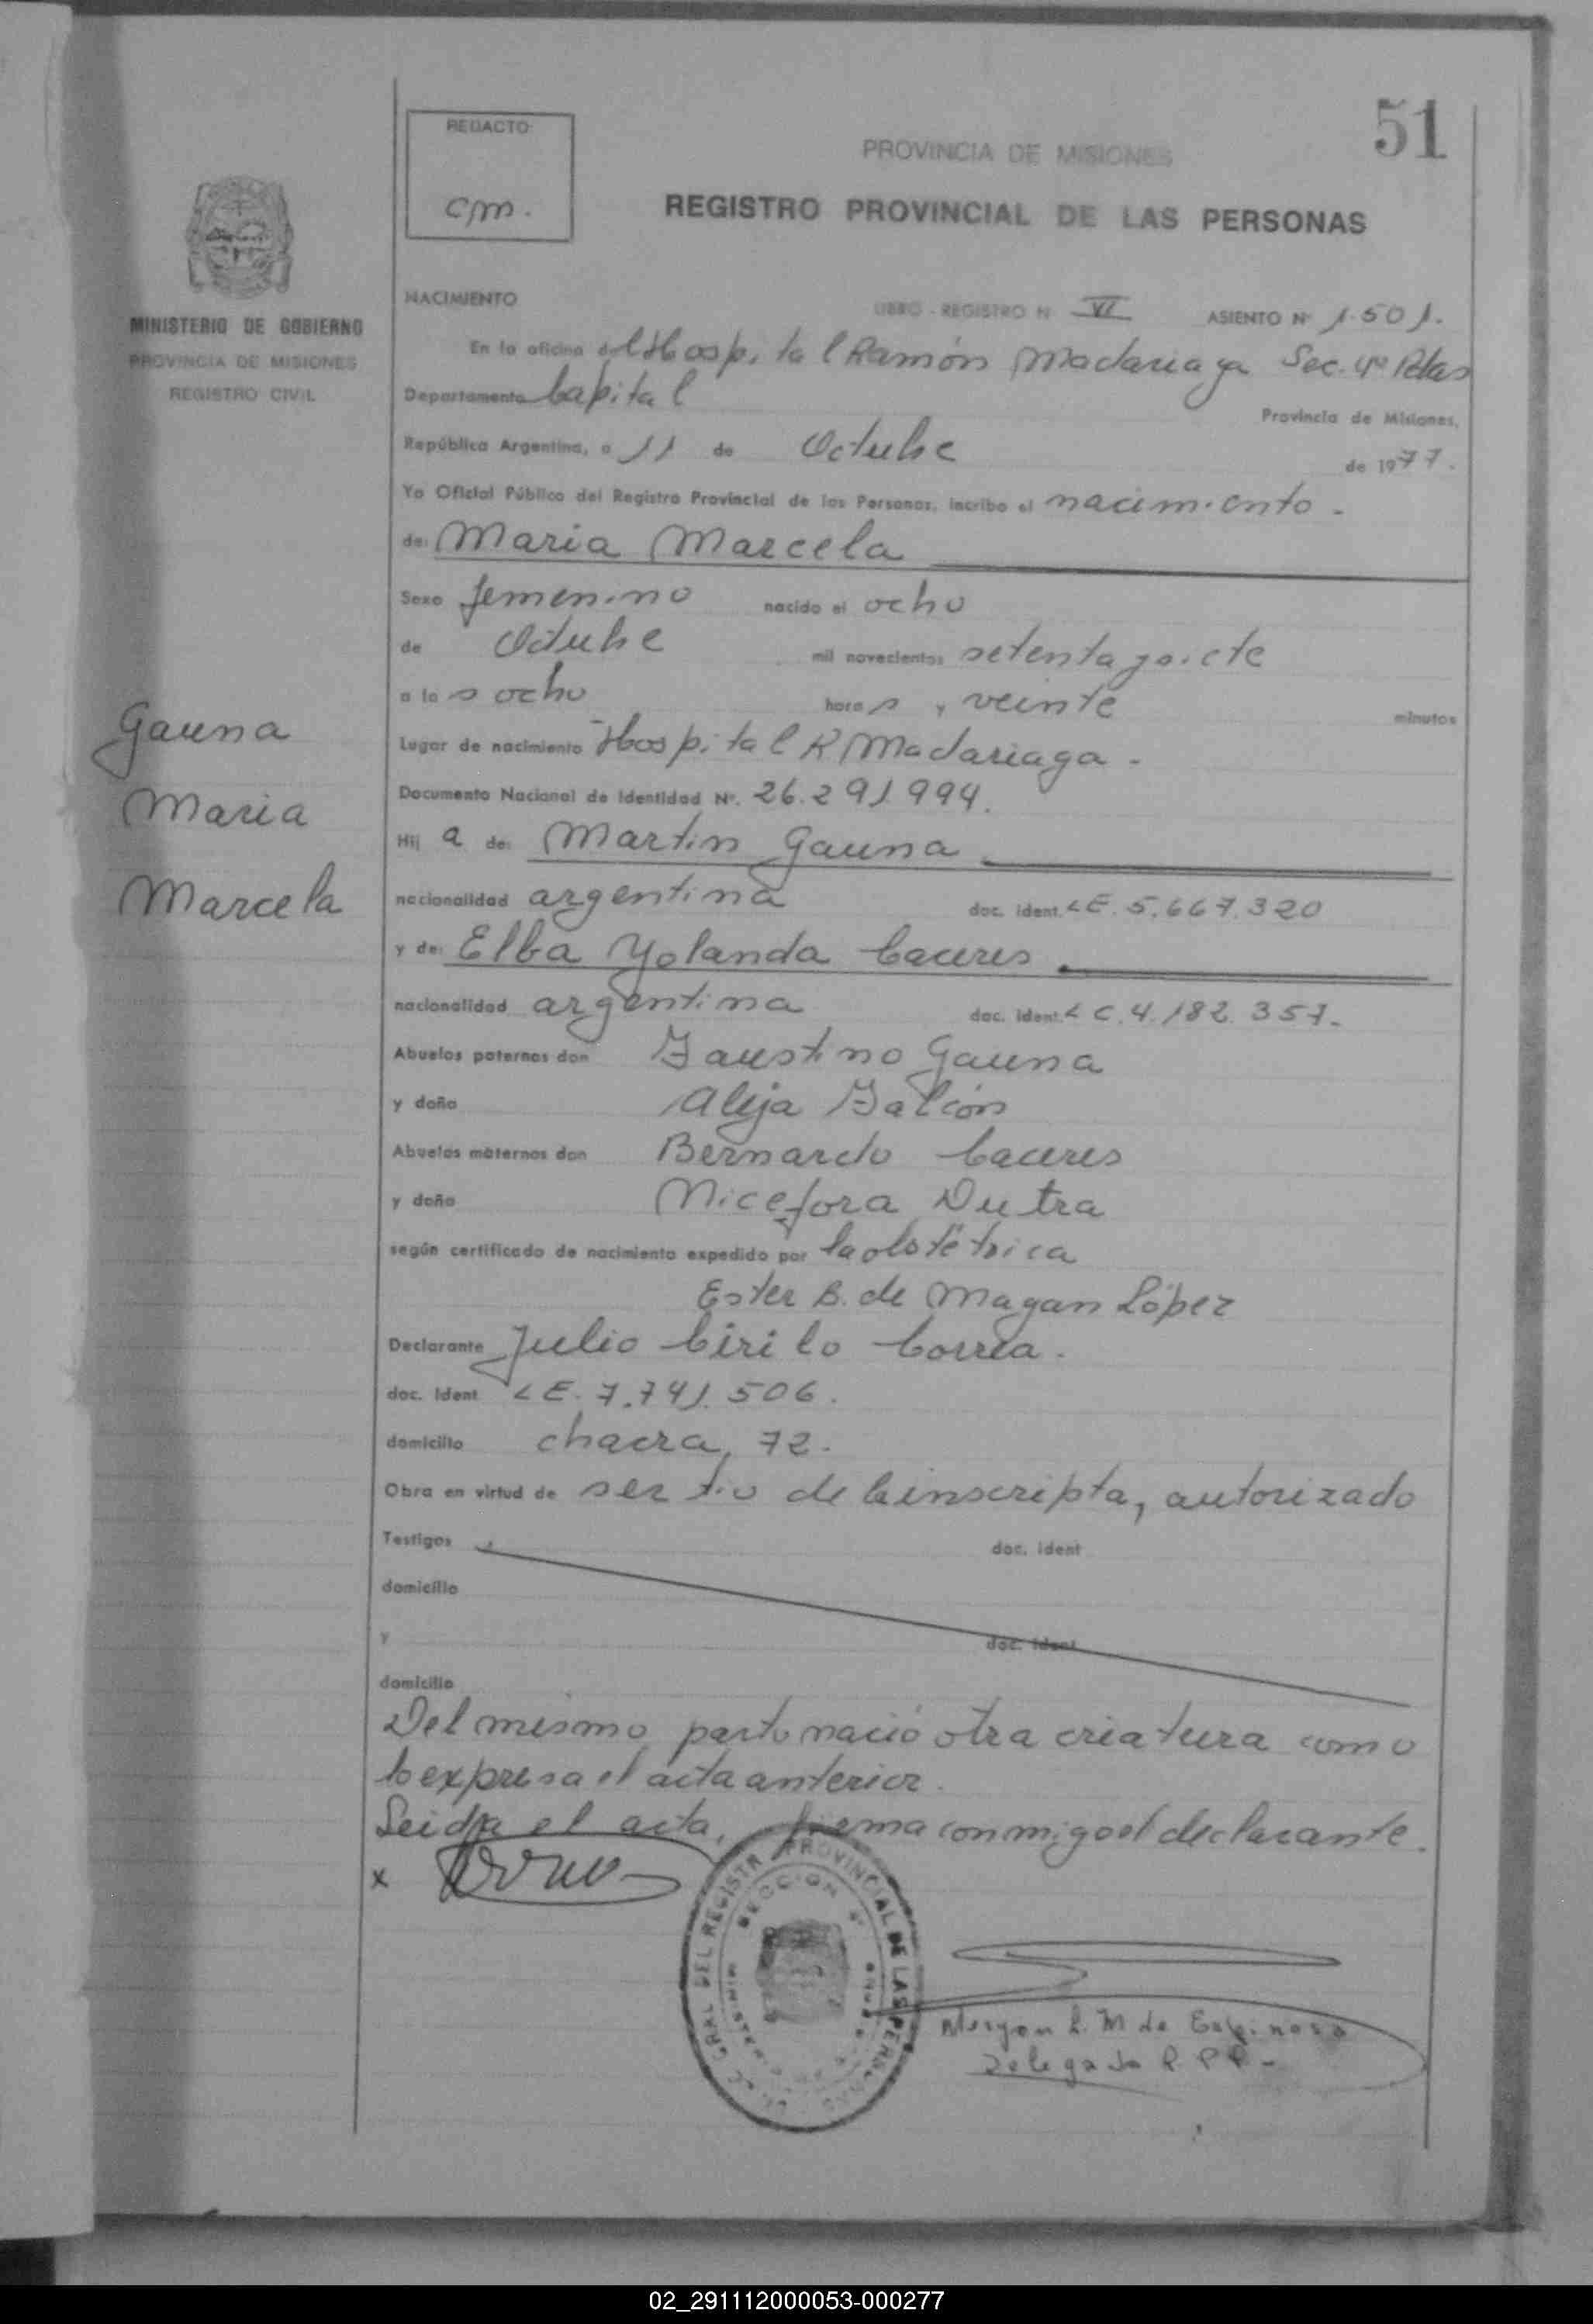 51
REDACTO:
cm.
PROVINCIA DE MISIONES
REGISTRO PROVINCIAL DE LAS PERSONAS
MINISTERIO DE GOBIERNO
PROVINCIA DE MISIONES
REGISTRO CIVIL
NACIMIENTO
LIBRO - REGISTRO N VI ASIENTO Nº 1.501.
En la oficina del Hospital Ramón Madariaga Sec. 4ª Pdas
Departamento Capital
Provincia de Misiones,
República Argentina, a 11 de Octubre de 1977.
Yo Oficial Público del Registro Provincial de las Personas, incribo el nacimiento.
de: Maria Marcela
Sexo femenino nacido el ocho
de Octubre mil novecientos setenta y siete
a las ocho horas y veinte minutos
Lugar de nacimiento Hospital R Madariaga.
Documento Nacional de Identidad Nº. 26.291.994.
Hij a de: Martin Gauna
nacionalidad argentina doc. ident. LE. 5.667.320
y de: Elba Yolanda Caceres
nacionalidad argentina doc. ident. LC. 4.182.357.
Abuelos paternos don Faustino Gauna
y doña Aleja Falcón
Abuelos maternos don Bernardo Caceres
y doña Nicefora Dutra
según certificado de nacimiento expedido por la obstétrica
Ester B. de Magan López
Declarante Julio Cirilo Correa.
doc. Ident LE. 7.741.506.
domicilio chacra 72.
Obra en virtud de ser tio de la inscripta, autorizado
Testigos doc. ident
domicilio
y doc. ident
domicilio
Del mismo parto nació otra criatura como
lo expresa el acta anterior.
Leida el acta, firma conmigo el declarante.
x
GRAL DEL REGISTR PROVINCIAL DE LAS PERSONAS
SECCION 4ª
L. M de Espinosa
Delegada R P P -
Gauna
Maria
Marcela
02_291112000053-000277